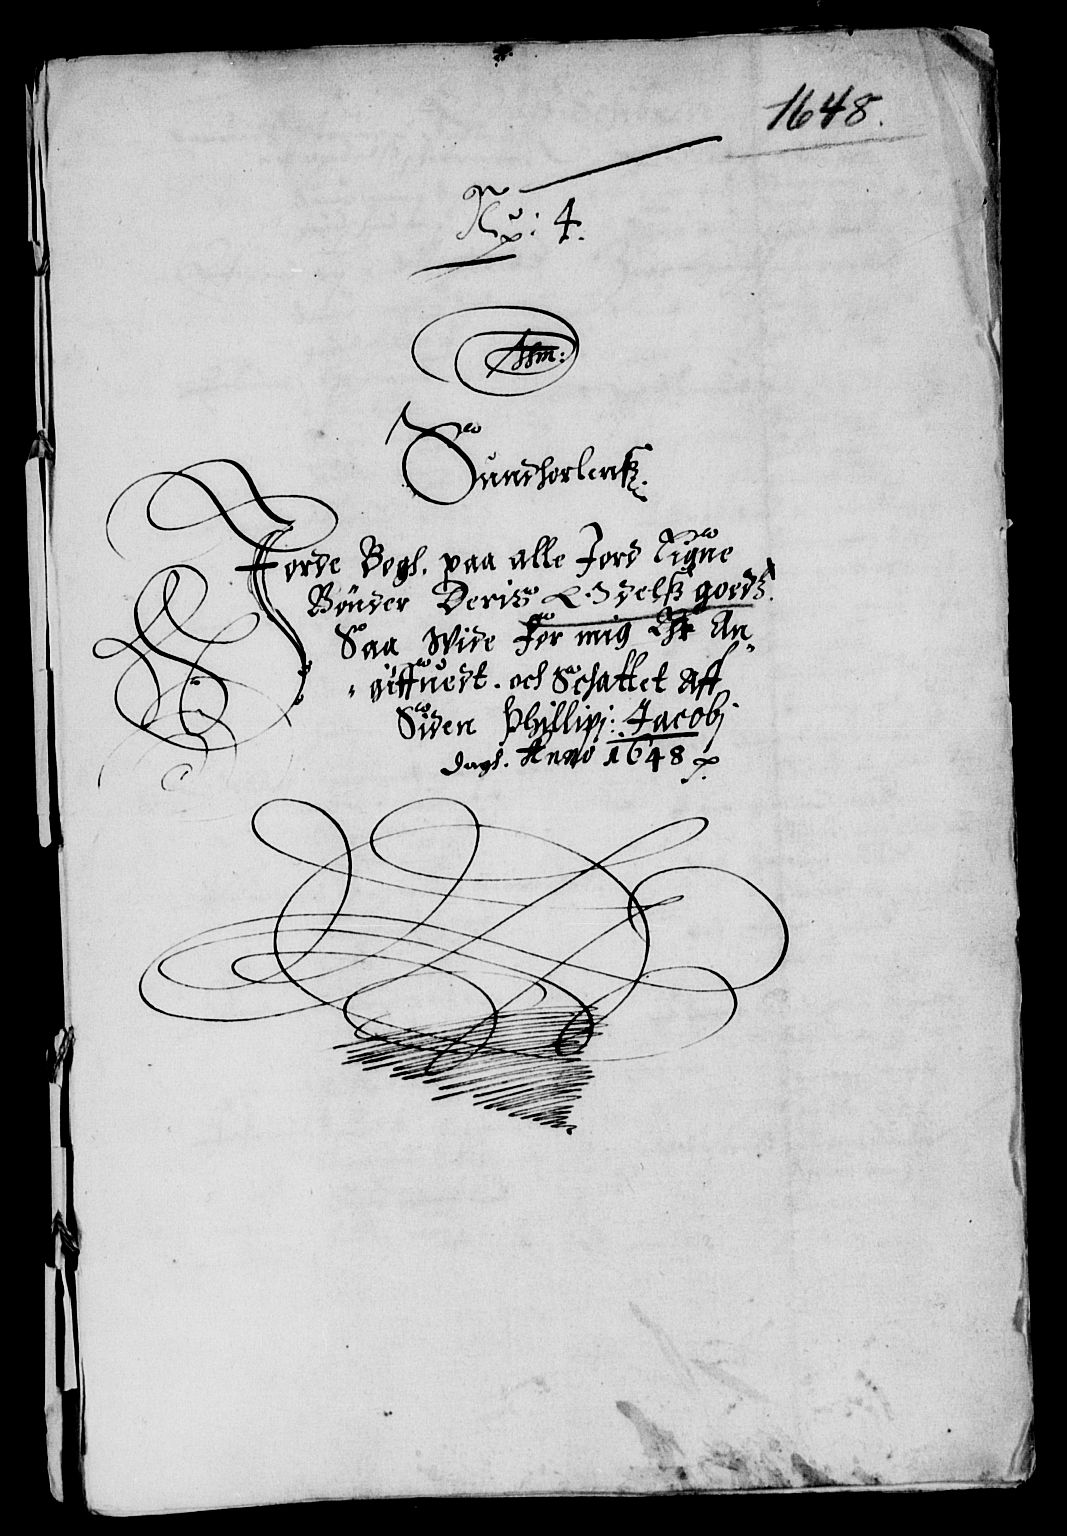 1648.
No: 4.
Sundhorlenß.
Jorde Bogh. paa alle Jord Eigne
Bønder Deris Odelß goedß.
Saa Wide for mig Er An„
„giffuedt. och Schattet Aff
Siden Phillipi: Jacobj
dagh. Anno 1648